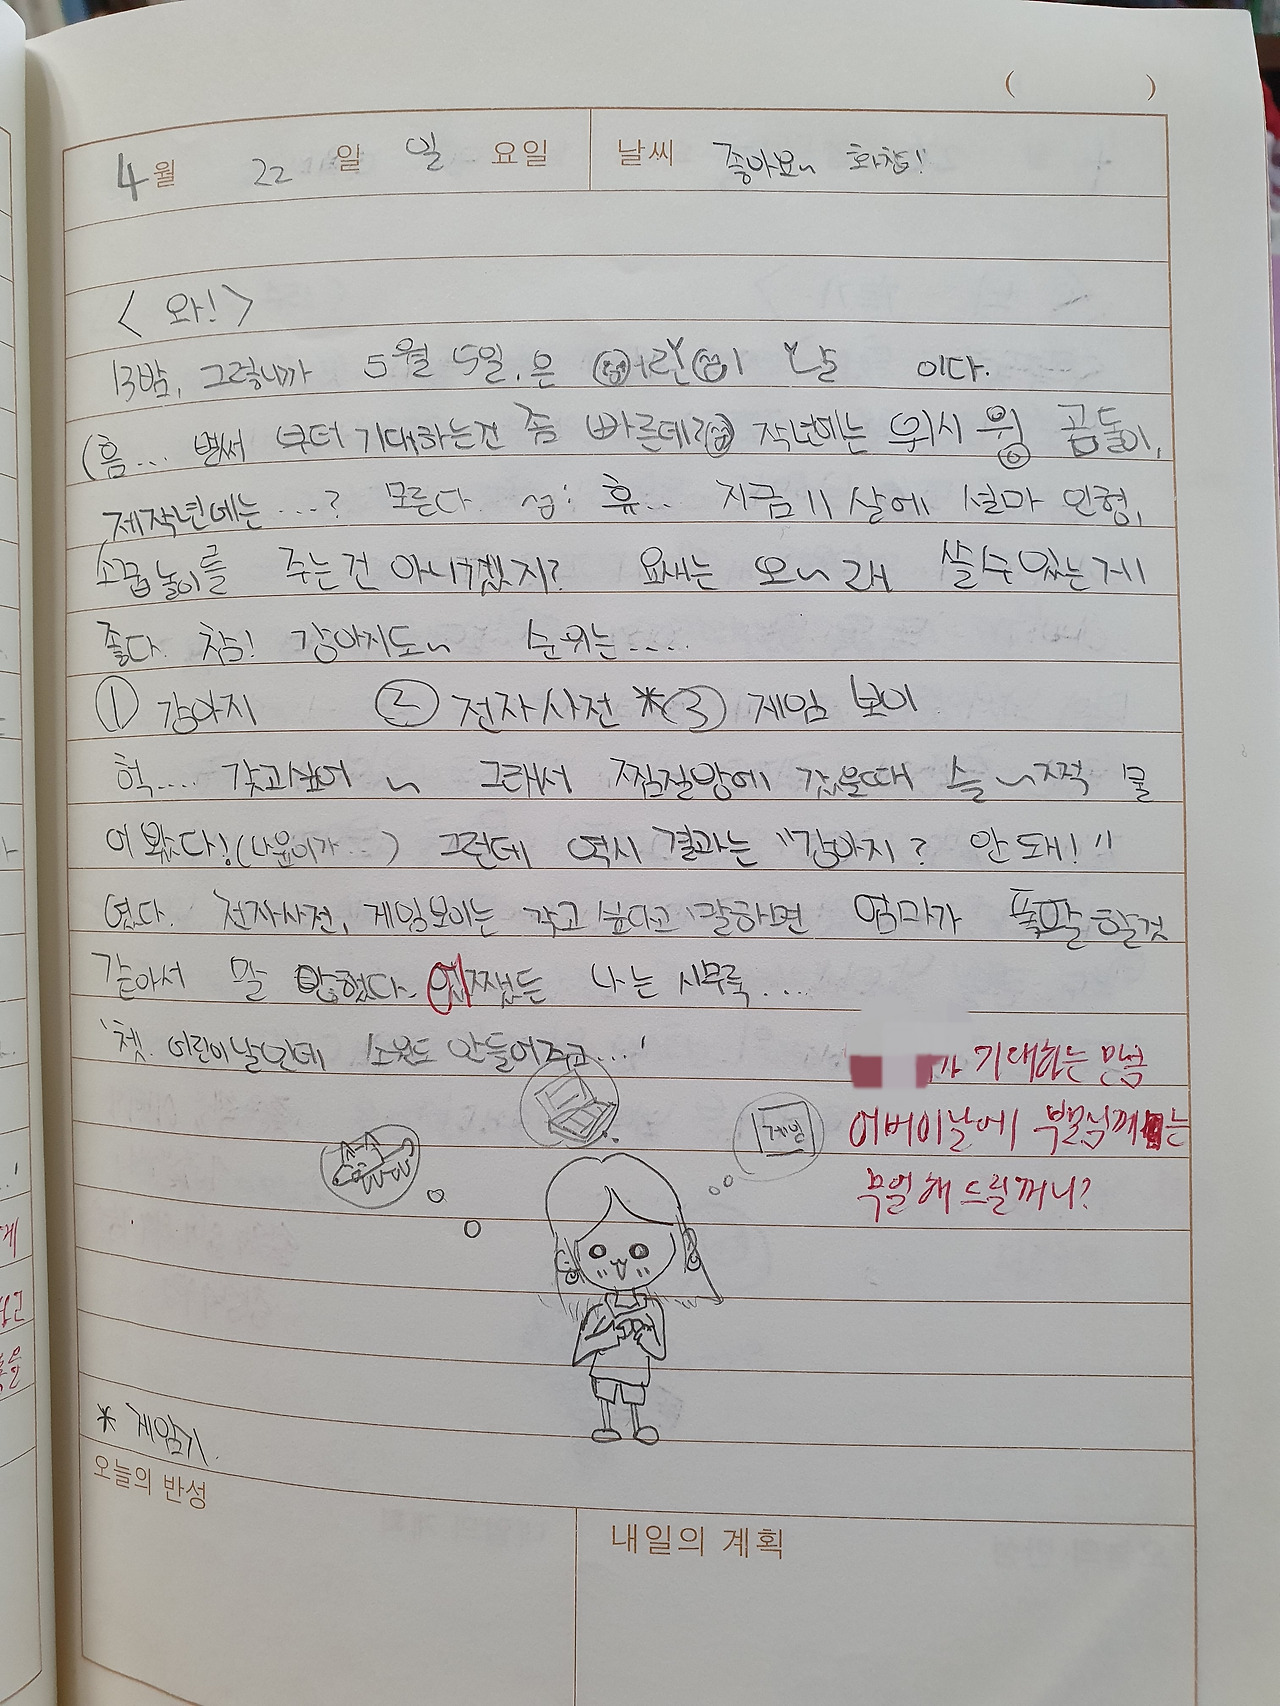 ( )
4월 22일 일요일 날씨 좋아요~ 화창!
< 와! >
13밤, 그렇니까 5월 5일.은 어린이 날 이다.
(흠... 벌써 부터 기대하는건 좀 빠른데?) 작년에는 위시 윙 곰돌이,
제작년에는 ...? 모른다. 휴... 지금 11살에 설마 인형,
소꿉놀이를 주는건 아니겠지? 요새는 오~래 쓸수있는게
좋다. 참! 강아지도~ 순위는....
① 강아지 ② 전자사전 *③ 게임 보이
헉.... 갖고싶어~ 그래서 찜질방에 갔을때 슬~쩍 물
어 봤다!( ...) 그런데 역시 결과는 "강아지? 안 돼!"
였다. 전자사전, 게임보이는 갖고 싶다고 말하면 엄마가 폭팔할것
같아서 말 안했다. 어쨌든 나는 시무룩....
'쳇. 어린이날인데 소원도 안들어주고...'
가 기대하는 만큼
어버이날에 부모님께는
무얼 해 드릴꺼니?
게임
* 게임기.
오늘의 반성
내일의 계획